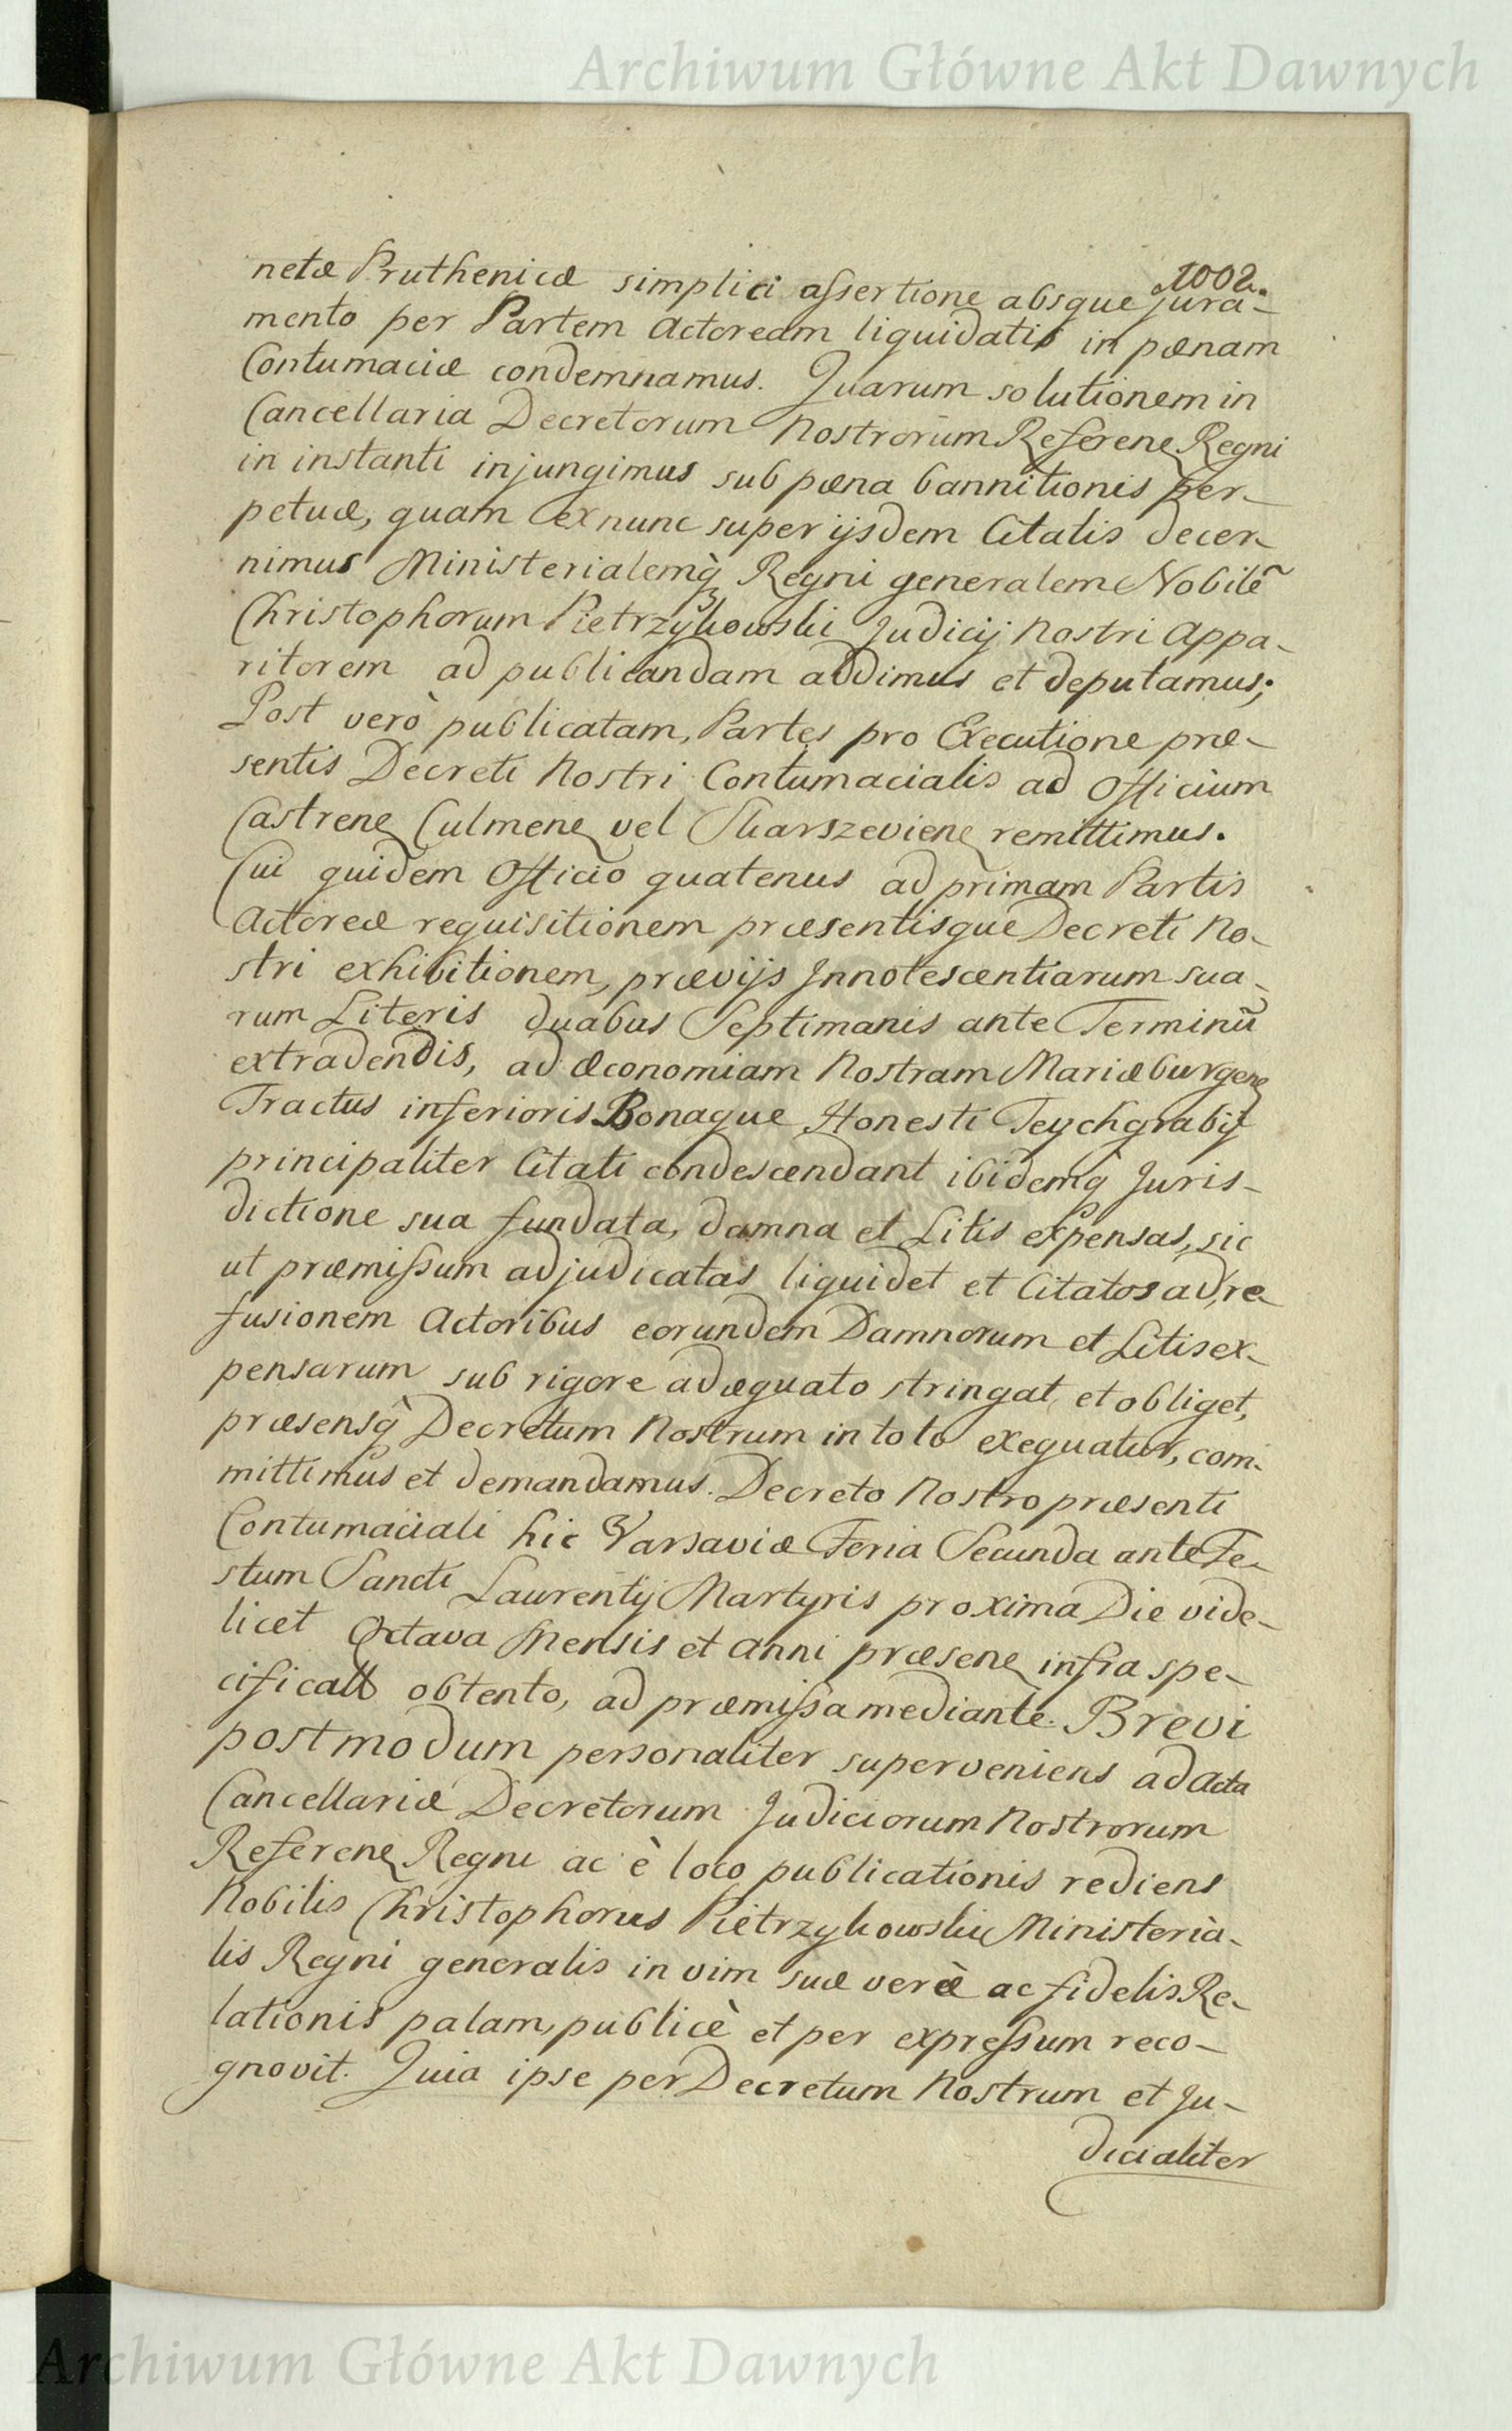 Archiwum Główne Akt Dawnych
1002.
netæ Pruthenicæ simplici assertione absque jura-
mento per Partem Actoream liquidatis in pænam
Contumaciæ condemnamus. Quarum solutionem in
Cancellaria Decretorum Nostrorum Referen Regni
in instanti injungimus sub pæna bannitionis per-
petuæ, quam ex nunc super ijsdem Citatis decer-
nimus Ministerialemq̀ Regni generalem Nobilẽ
Christophorum Pietrzykowski Judicij Nostri Appa-
ritorem ad publicandam addimus et deputamus;
Post verò publicatam, Partes pro Executione præ-
sentis Decreti Nostri Contumacialis ad Officium
Castren Culmen vel Skarszevien remittimus.
Cui quidem Officio quatenus ad primam Partis
Actoreæ requisitionem præsentisque Decreti No-
stri exhibitionem, prævijs Innotescentiarum sua-
rum Literis duabus Septimanis ante Terminũ
extradendis, ad Æconomiam Nostram Mariæburgen
Tractus inferioris Bonaque Honesti Teychgrabij
principaliter Citati condescendant ibidemq̀ Juris-
dictione sua fundata, damna et Litis expensas, sic
ut præmissum adjudicatas liquidet et Citatos ad re-
fusionem Actoribus eorundem Damnorum et Litis ex-
pensarum sub rigore adæquato stringat et obliget,
præsensq̀ Decretum Nostrum in toto exequatur, com-
mittimus et demandamus. Decreto Nostro præsenti
Contumaciali hic Varsaviæ Feria Secunda ante Fe-
stum Sancti Laurentij Martyris proxima Die vide-
licet Octava Mensis et Anni præsen infra spe-
cificatt obtento, ad præmissa mediante. Brevi
postmodum personaliter superveniens ad Acta
Cancellariæ Decretorum Judiciorum Nostrorum
Referen Regni ac è loco publicationis rediens
Nobilis Christophorus Pietrzykowski Ministeria-
lis Regni generalis in vim suæ veræ ac fidelis Re-
lationis palam, publicè et per expressum reco-
gnovit. Quia ipse per Decretum Nostrum et Ju-
dicialiter
Archiwum Główne Akt Dawnych